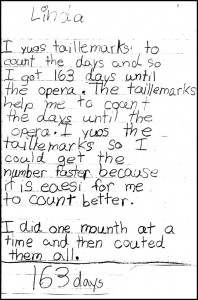 Linda
I yuos taillemarks to
count the days and so
I got 163 days until
the opera. The taillemarks
help me to count
the days until the
opera. I yuos the
taillemarks so I
could get the
number faster because
it is eaesi for me
to count better.
I did one mounth at a
time and then couted
them all.
163 days